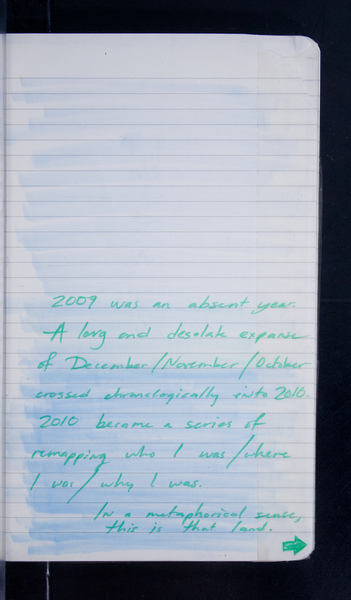 2009 was an absent year.
A long and desolate expanse
of December/November/October
crossed chronologically into 2010.
2010 became a series of
remapping who I was/where
I was/why I was.
In a metaphorical sense,
this is that land.